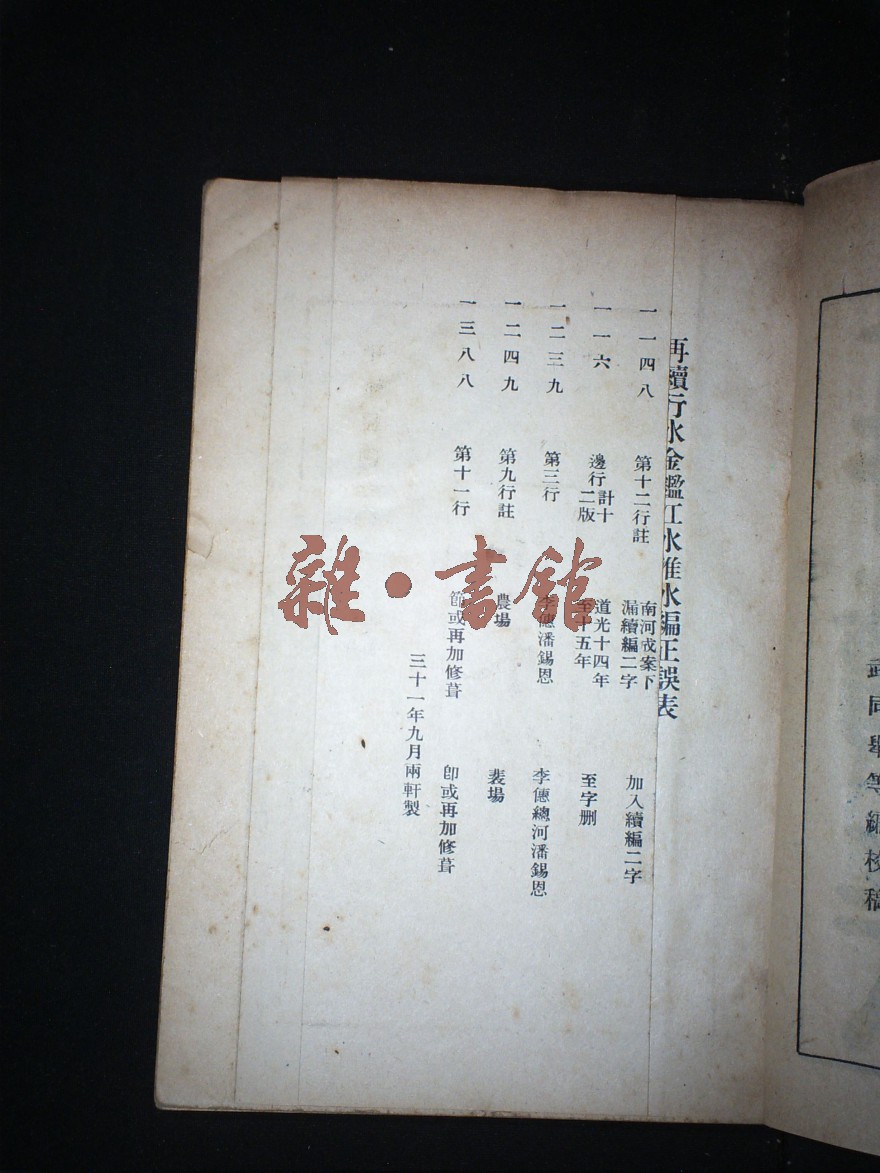 武同舉等編校稿
再續行水金鑑江水淮水編正誤表
一一四八 第十二行註 南河成案下漏續編二字 加入續編二字
一一六 邊行計十二版 道光十四年至十五年 至字刪
一二三九 第三行 李僡潘錫恩 李僡總河潘錫恩
一二四九 第九行註 農場 裴場
一三八八 第十一行 節或再加修葺 卽或再加修葺
三十一年九月兩軒製
雜·書館